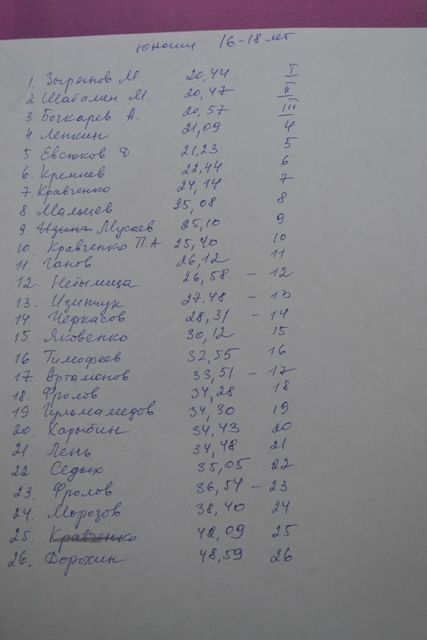 Юноши 16-18 лет
1. Зырянов М 20,44 I
2 Шабамен М. 20,47 II
3 Бочкарев А. 20,57 III
4 Лепкин 21,09 4
5 Евсюков 21,23 5
6. Кремнев 22,44 6
7 Кравченко 24,14 7
8. Мальцев 25,08 8
9 Мусаев 25,10 9
10. Кравченко П.А 25,40 10
11 Ганов 26,12 11
12. Небылица 26,58 - 12
13. Изипчук 27.48 - 13
14 Черкасов 28,31 - 14
15. Яковенко 30,12 15
16. Тимофеев 32,55 16
17. Артамонов 33,51 - 17
18. Фролов 34,28 18
19 Гульмамедов 34,30 19
20. Карыбин 34,43 20
21. Лень 34,48 21
22. Седых 35,05 22
23. Фролов 36,54 - 23
24. Морозов 38,40 24
25. Кравченко 42,09 25
26. Дорохин 48,59 26